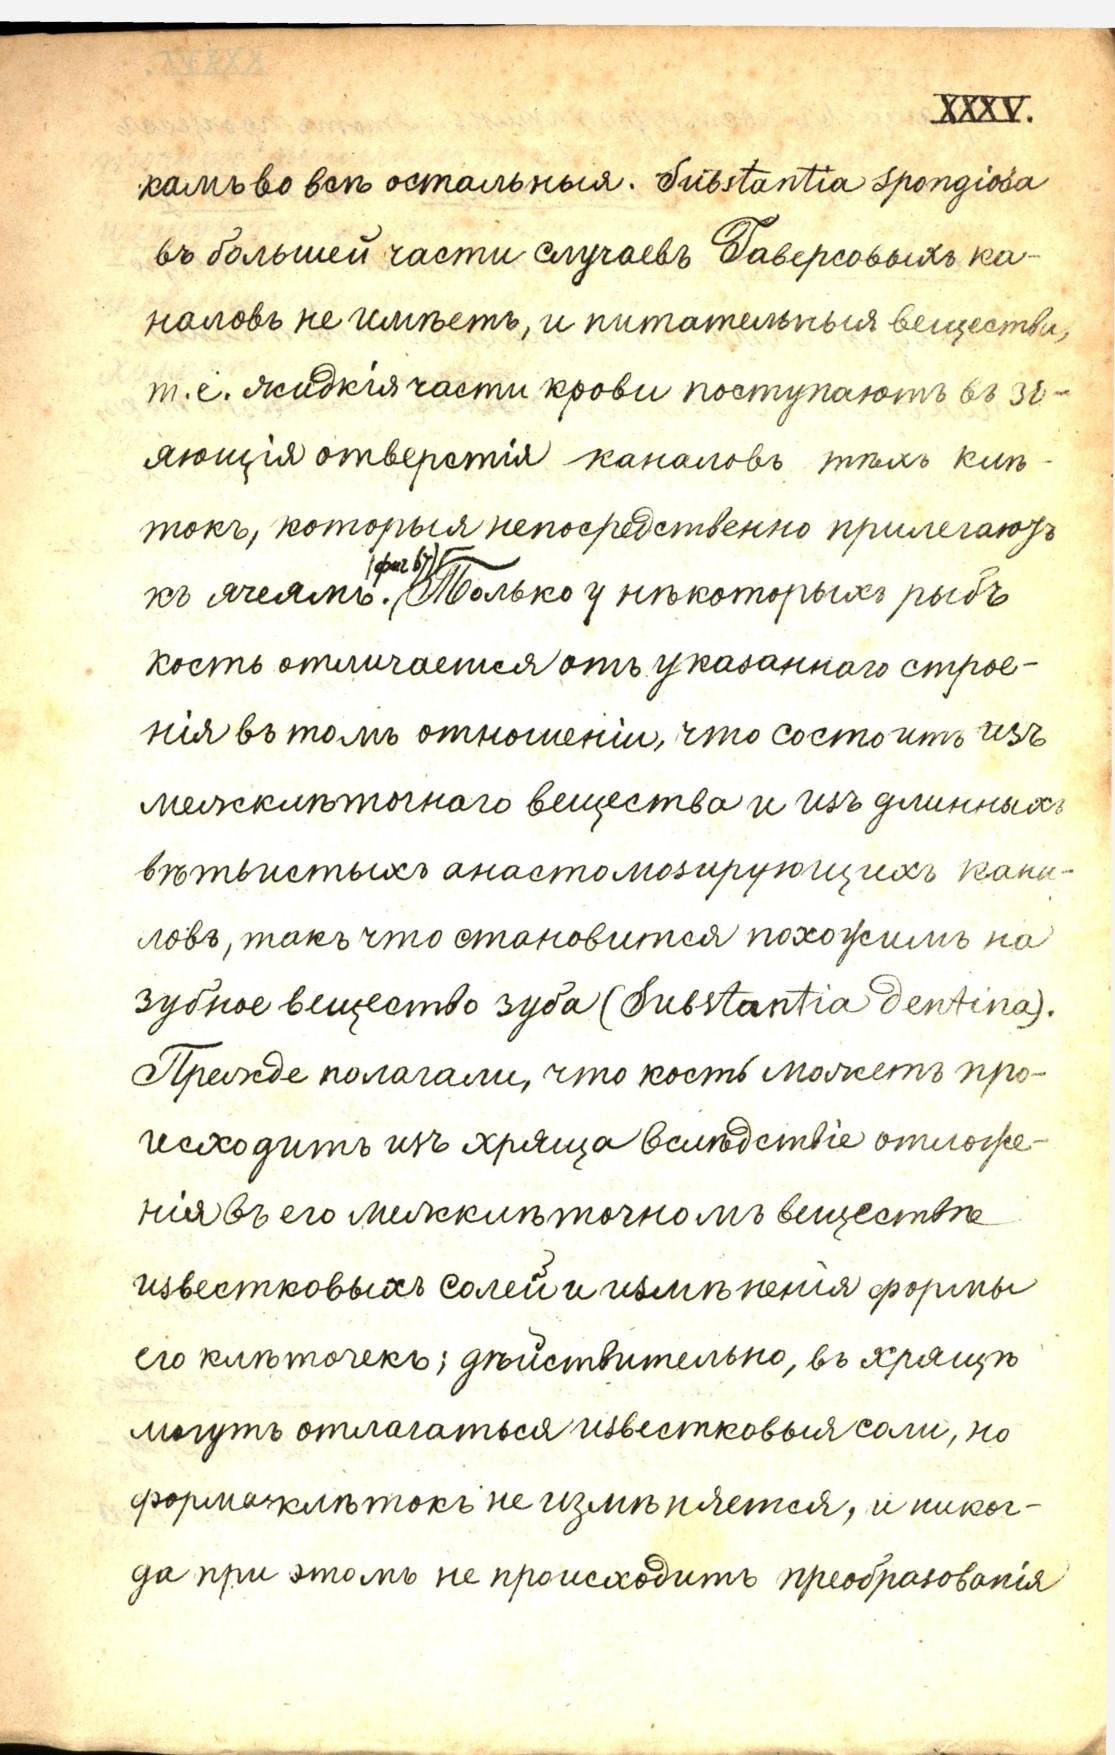 XXXV.
камъ во всѣ остальныя. Substantia spongiosa
въ большей части случаевъ Гаверсовыхъ ка-
наловъ не имѣетъ, и питательныя вещества,
т. е. жидкія части крови поступаютъ въ зі-
яющія отверстія каналовъ тѣхъ клѣ-
токъ, которыя непосредственно прилегаютъ
(фиг 67)
къ ячеямъ. Только у нѣкоторыхъ рыбъ
кость отличается отъ указаннаго строе-
нія въ томъ отношеніи, что состоитъ изъ
межклѣточнаго вещества и изъ длинныхъ
вѣтьистыхъ анастомозирующихъ кана-
ловъ, такъ что становится похожимъ на
зубное вещество зуба (Substantia Dentina).
Прежде полагали, что кость можетъ про-
исходить изъ хряща вслѣдствіе отложе-
нія въ его межклѣточномъ веществѣ
известковыхъ солей и измѣненія формы
его клѣточекъ; дѣйствительно, въ хрящѣ
могутъ отлагаться известковыя соли, но
форма клѣтокъ не измѣняется, и никог-
да при этомъ не происходитъ преобразованія